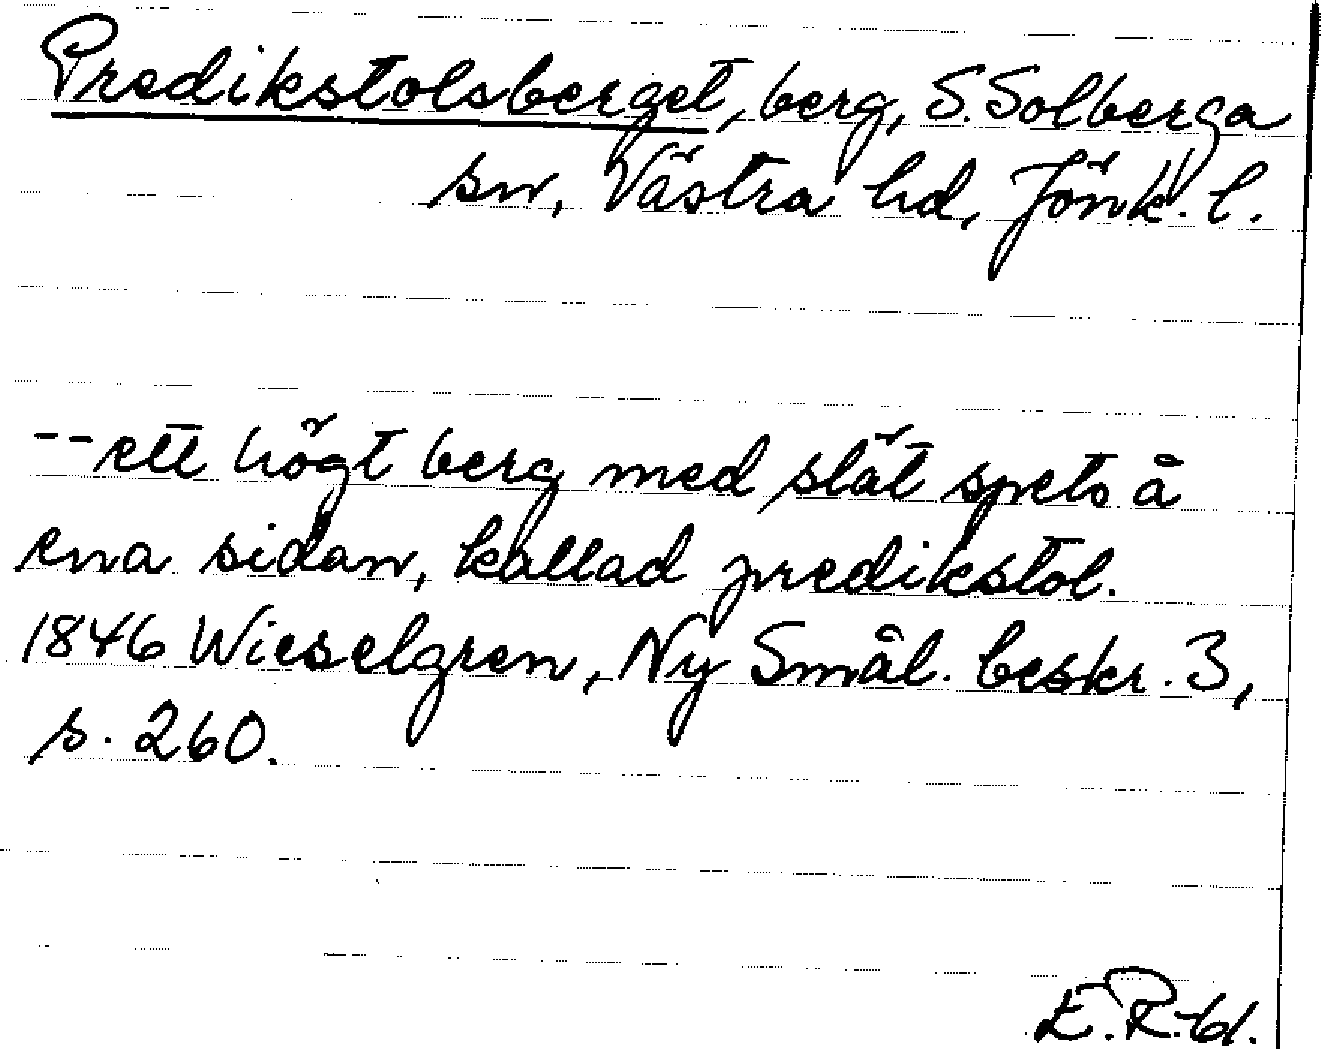 Predikstolsberget, berg, S. Solberga
sn, Västra hd, Jönk. l.
--ett högt berg med slät spets å
ena sidan, kallad predikstol.
1846 Wieselgren, Ny Smål. beskr. 3,
s. 260.
E.R.-61.